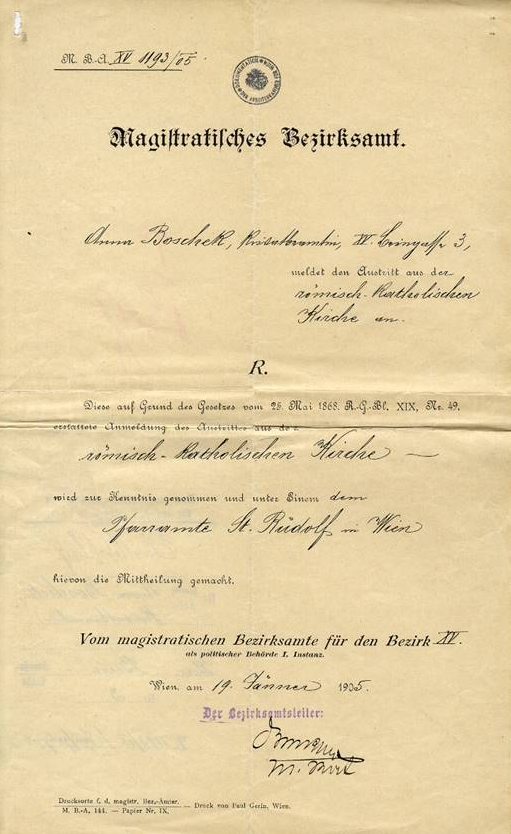 M. B.-A. XV 1193/05
Magistratisches Bezirksamt.
Anna Boschek, Privatbeamtin, XV. 3,
meldet den Austritt aus der
römisch-katholischen
Kirche an.
R.
Diese auf Grund des Gesetzes vom 25. Mai 1868. R.-G.-Bl. XIX, Nr. 49.
erstattete Anmeldung des Austrittes aus der
römisch-katholischen Kirche —
wird zur Kenntnis genommen und unter Einem dem
Pfarramte St. Rudolf in Wien
hievon die Mittheilung gemacht.
Vom magistratischen Bezirksamte für den Bezirk XV.
als politischer Behörde I. Instanz.
Wien, am 19. Jänner 1905.
Der Bezirksamtsleiter:
Drucksorte f. d. magistr. Bez.-Ämter.
M. B.-A. 144. — Papier Nr. IX. — Druck von Paul Gerin, Wien.